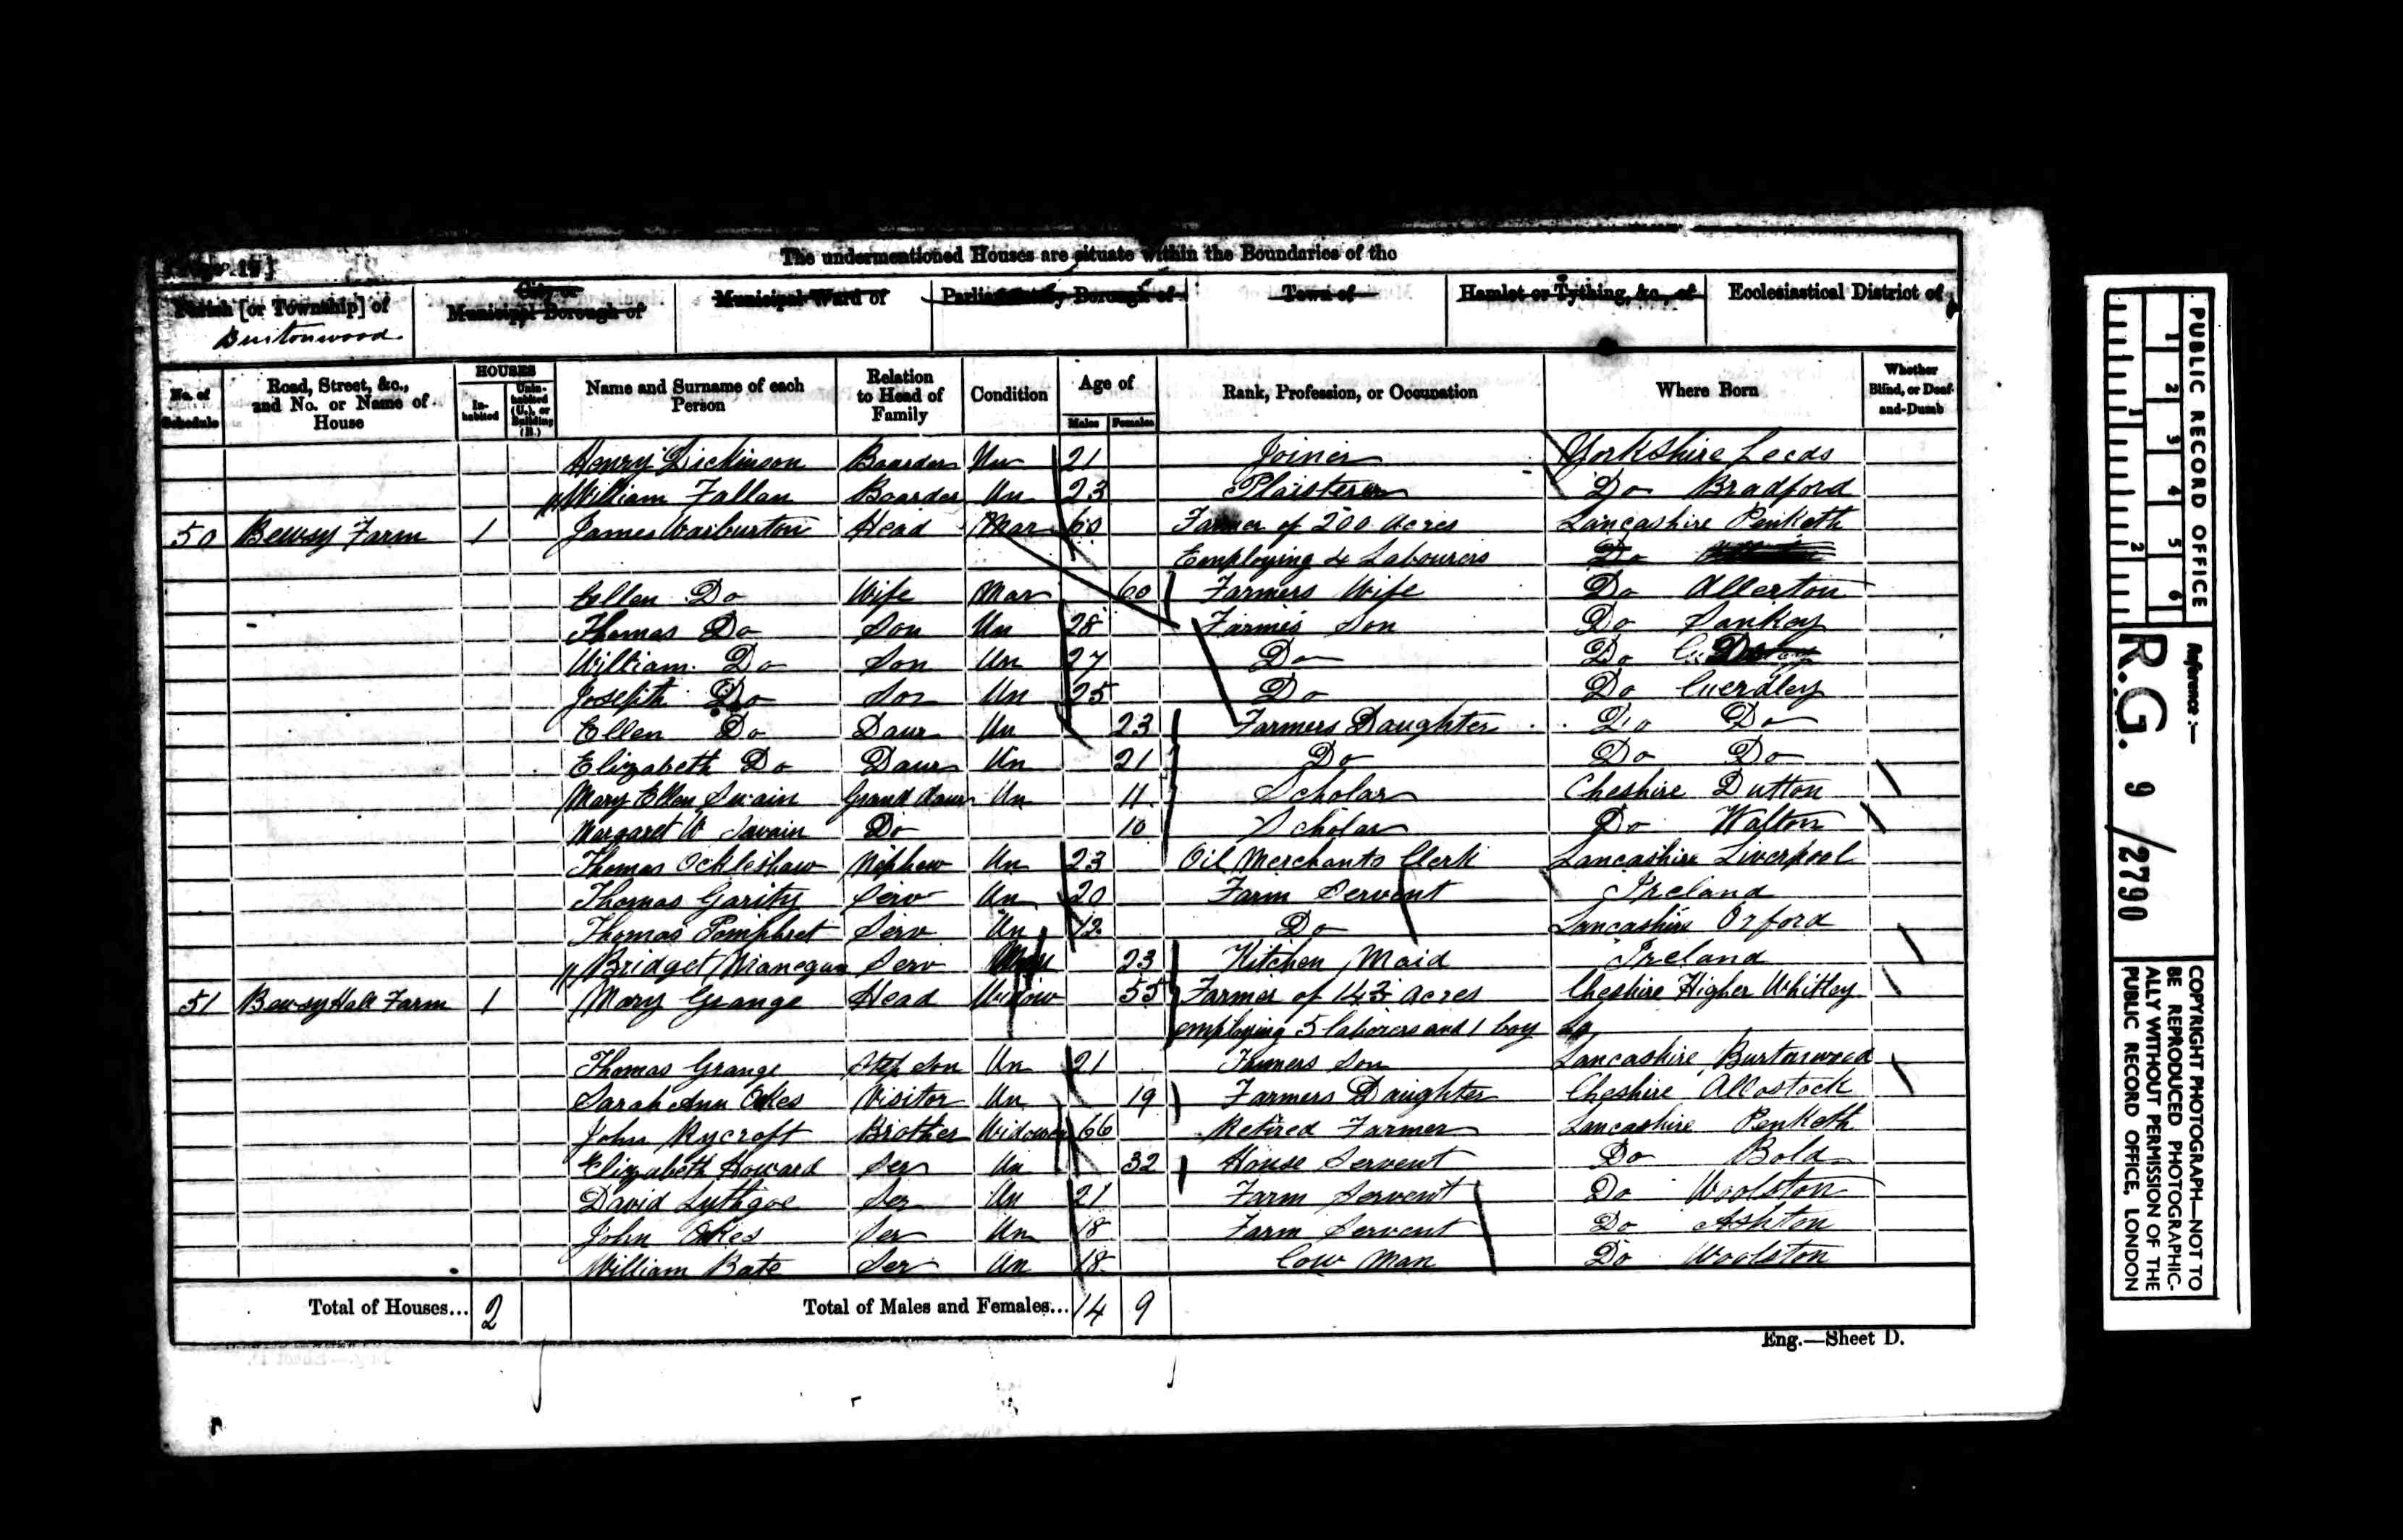 The undermentioned Houses are situate within the Boundaries of the
Parish [or Township] of
Burtonwood
City or
Municipal Borough of
Municipal Ward of
Parliamentary Borough of
Town of
Hamlet or Tything, &c., of
Ecclesiastical District of
No. of Schedule
Road, Street, &c., and No. or Name of House
HOUSES
In-habited
Unin-habited (U.), or Building (B.)
Name and Surname of each Person
Relation to Head of Family
Condition
Age of
Males
Females
Rank, Profession, or Occupation
Where Born
Whether Blind, or Deaf-and-Dumb
Henry Dickinson Boarder Un 21 Joiner Yorkshire Leeds
William Fallan Boarder Un 23 Plaisterer Do Bradford
50 Bewsy Farm 1 James Warburton Head Mar 60 Farmer of 200 Acres Lancashire Penketh
Employing 4 Labourers Do
Ellen Do Wife Mar 60 Farmers Wife Do Allerton
Thomas Do Son Un 28 Farmes Son Do Sankey
William Do Son Un 27 Do Do Do
Joseph Do Son Un 25 Do Do Cuerdley
Ellen Do Daur Un 23 Farmers Daughter Do Do
Elizabeth Do Daur Un 21 Do Do Do
Mary Ellen Swain Grand daur Un 11 Scholar Cheshire Dutton
Margaret W Swain Do 10 Scholar Do Walton
Thomas Ockleshaw Nephew Un 23 Oil Merchants Clerk Lancashire Liverpool
Thomas Garity Serv Un 20 Farm Servent Ireland
Thomas Pomphret Serv Un 12 Do Lancashire Orford
Bridget Serv 23 Kitchen Maid Ireland
51 Bewsy Hall Farm 1 Mary Grange Head Widow 55 Farmer of Acres Cheshire Higher Whitley
employing 5 laborers and 1 boy
Thomas Grange Step Son Un 21 Farmers Son Lancashire Burtonwood
Sarah Ann Okes Visitor Un 19 Farmers Daughter Cheshire Allostock
John Rycroft Brother Widower 66 Retired Farmer Lancashire Penketh
Elizabeth Howard Ser Un 32 House Servent Do Bold
David Lythgoe Ser Un 21 Farm Servent Do Woolston
John Okes Ser Un 18 Farm Servent Do Ashton
William Bate Ser Un 18 Cow Man Do Woolston
Total of Houses... 2
Total of Males and Females... 14 9
Eng.—Sheet D.
PUBLIC RECORD OFFICE
1 2 3 4 5 6
1 2
Reference:—
R.G. 9/2790
COPYRIGHT PHOTOGRAPH—NOT TO
BE REPRODUCED PHOTOGRAPHIC-
ALLY WITHOUT PERMISSION OF THE
PUBLIC RECORD OFFICE, LONDON